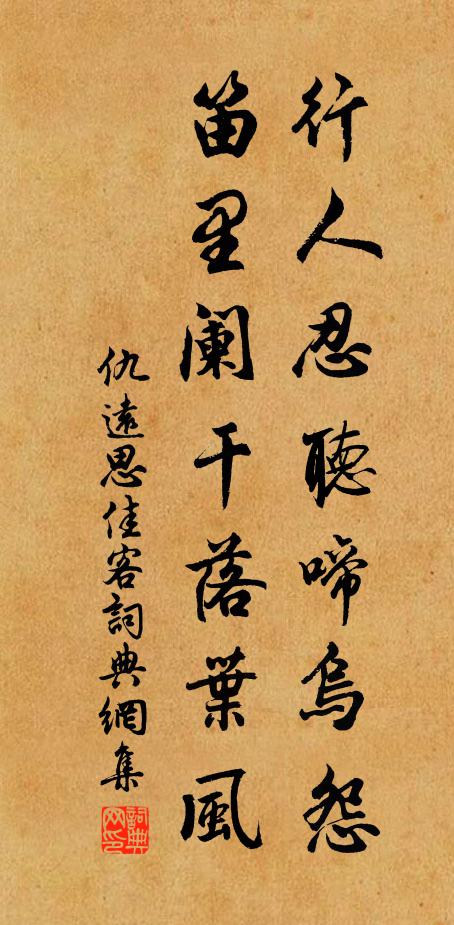 行人忍聽啼烏怨
笛里闌干落葉風
仇遠思佳客詞典網集
詞典网印